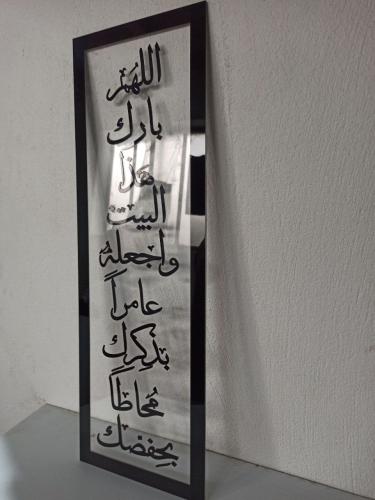 اللهُمَّ
بارك
هذا
البيت
واجعلهُ
عامراً
بذِكرك
مُحاطاً
بحِفضك